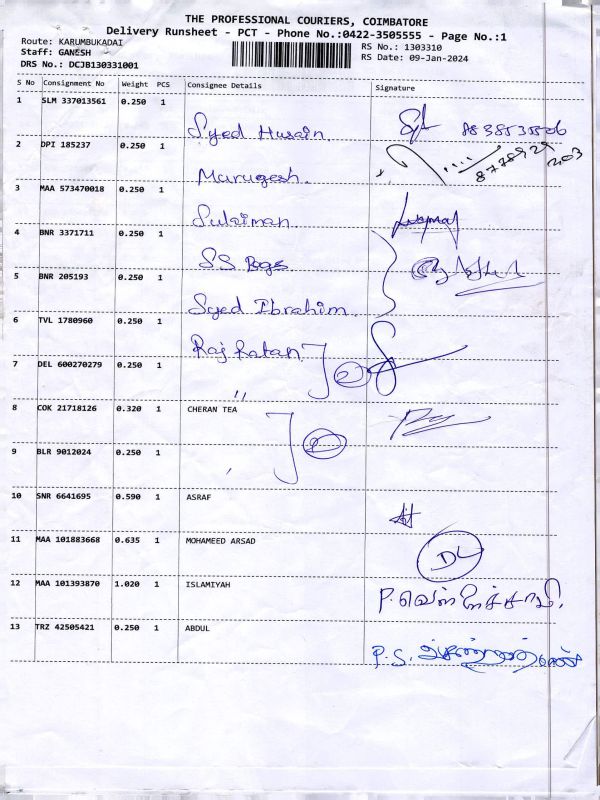 THE PROFESSIONAL COURIERS, COIMBATORE
Delivery Runsheet - PCT - Phone No.:0422-3505555 - Page No.:1
Route: KARUMBUKADAI
RS No.: 1303310
Staff: GANESH
RS Date: 09-Jan-2024
DRS No.: DCJB130331001
S No Consignment No Weight PCS Consignee Details Signature
1 SLM 337013561 0.250 1 Syed Husain
2 DPI 185237 0.250 1 Murugesh.
3 MAA 573470018 0.250 1 Sulaiman
4 BNR 3371711 0.250 1 S.S Bags
5 BNR 205193 0.250 1 Syed Ibrahim.
6 TVL 1780960 0.250 1 Raj Ratan 2
7 DEL 600270279 0.250 1 "
8 COK 21718126 0.320 1 CHERAN TEA
9 BLR 9012024 0.250 1
10 SNR 6641695 0.590 1 ASRAF
11 MAA 101883668 0.635 1 MOHAMEED ARSAD DL
12 MAA 101393870 1.020 1 ISLAMIYAH
13 TRZ 42505421 0.250 1 ABDUL P.S.